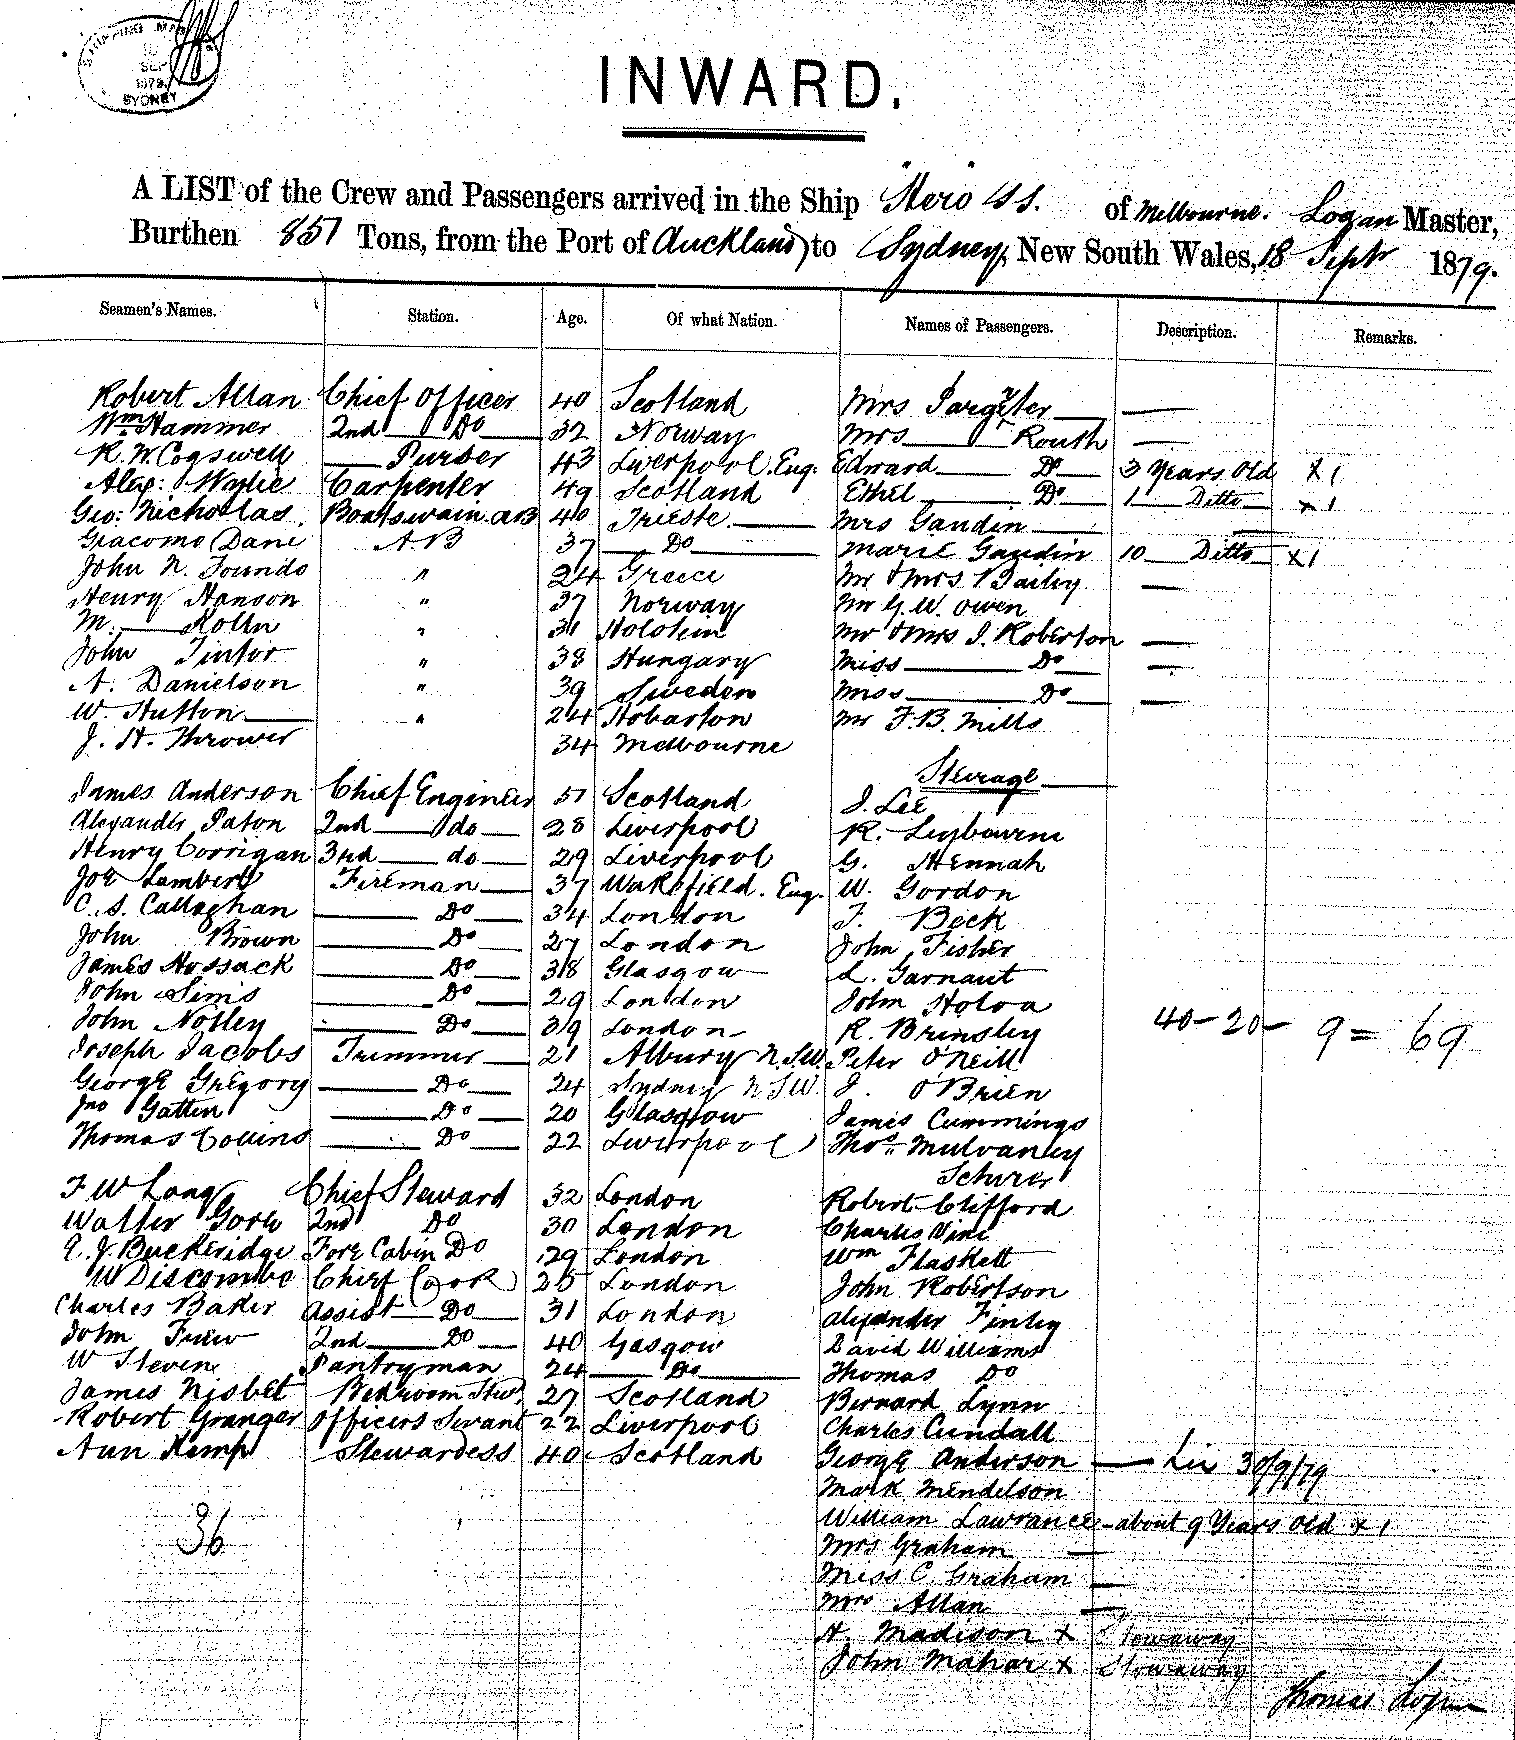 SHIPPING MASTER
SEP
1879
SYDNEY
INWARD.
A LIST of the Crew and Passengers arrived in the Ship "Hero" SS. of Melbourne. Logan Master,
Burthen 857 Tons, from the Port of Auckland to Sydney, New South Wales, 18 Septr 1879.
Seamen's Names. Station. Age. Of what Nation. Names of Passengers. Description. Remarks.
Robert Allan Chief Officer 40 Scotland Mrs
Wm. Hammer 2nd Do 32 Norway Mrs Routh
R. W. Cogswell Purser 43 Liverpool. Eng. Edward Do 3 Years Old x1
Alex: Wylie Carpenter 49 Scotland Ethel Do 1 Ditto x1
Geo: Nichollas. Boatswain AB 40 Trieste Mrs Gaudin
Giacomo Dani A.B 37 Do Marie Gaudin 10 Ditto x1
John N. Foundo " 24 Greece Mr & Mrs Bailey
Henry Hanson " 37 Norway Mr G. W. Owen
M. Kohn " 31 Holstein Mr & Mrs J. Roberton
John Tintor " 38 Hungary Miss Do
A. Danielson " 39 Sweden Miss Do
W. Hutton " 24 Hobarton Mr F. B. Mills
J. H. Thrower 34 Melbourne
Steerage
James Anderson Chief Engineer 51 Scotland J. Lee
Alexander Paton 2nd do 28 Liverpool R. Leybourne
Henry Corrigan 3rd do 29 Liverpool G. Hennah
Joe Lambert Fireman 37 Wakefield. Eng. W. Gordon
C. S. Callaghan Do 34 London F. Beck
John Brown Do 27 London John Fisher
James Hossack Do 38 Glasgow L. Garnaut
John Sims Do 29 London John Holoa
John Notley Do 39 London R. Brinsley 40-20-9= 69
Joseph Jacobs Trimmer 21 Albury N.S.W. Peter O'Neill
George Gregory Do 24 Sydney N.S.W. J. O'Brien
Jno Gatten Do 20 Glasgow James Cummings
Thomas Collins Do 22 Liverpool Thos. Mulvaney
Schurer
F W Long Chief Steward 32 London Robert Clifford
Walter Gore 2nd Do 30 London Charles Vine
E. J. Buckeridge Fore Cabin Do 29 London Wm Flaskett
W Discombe Chief Cook 25 London John Robertson
Charles Baker Assist Do 31 London Alexander Finley
John Frew 2nd Do 40 Gasgow David Williams
W Steven Pantryman 24 Do Thomas Do
James Nisbet Bedroom Stwd. 27 Scotland Bernard Lynn
Robert Granger Officers Servant 22 Liverpool Charles Cundall
Ann Kemp Stewardess 40 Scotland George Anderson 30/9/79
Mark Mendelson
36 William Lawrance about 9 Years Old x1
Mrs Graham
Miss C Graham
Mrs Allan
A. Madison x Stowaway
John Mahar x Stowaway
Thomas Logan